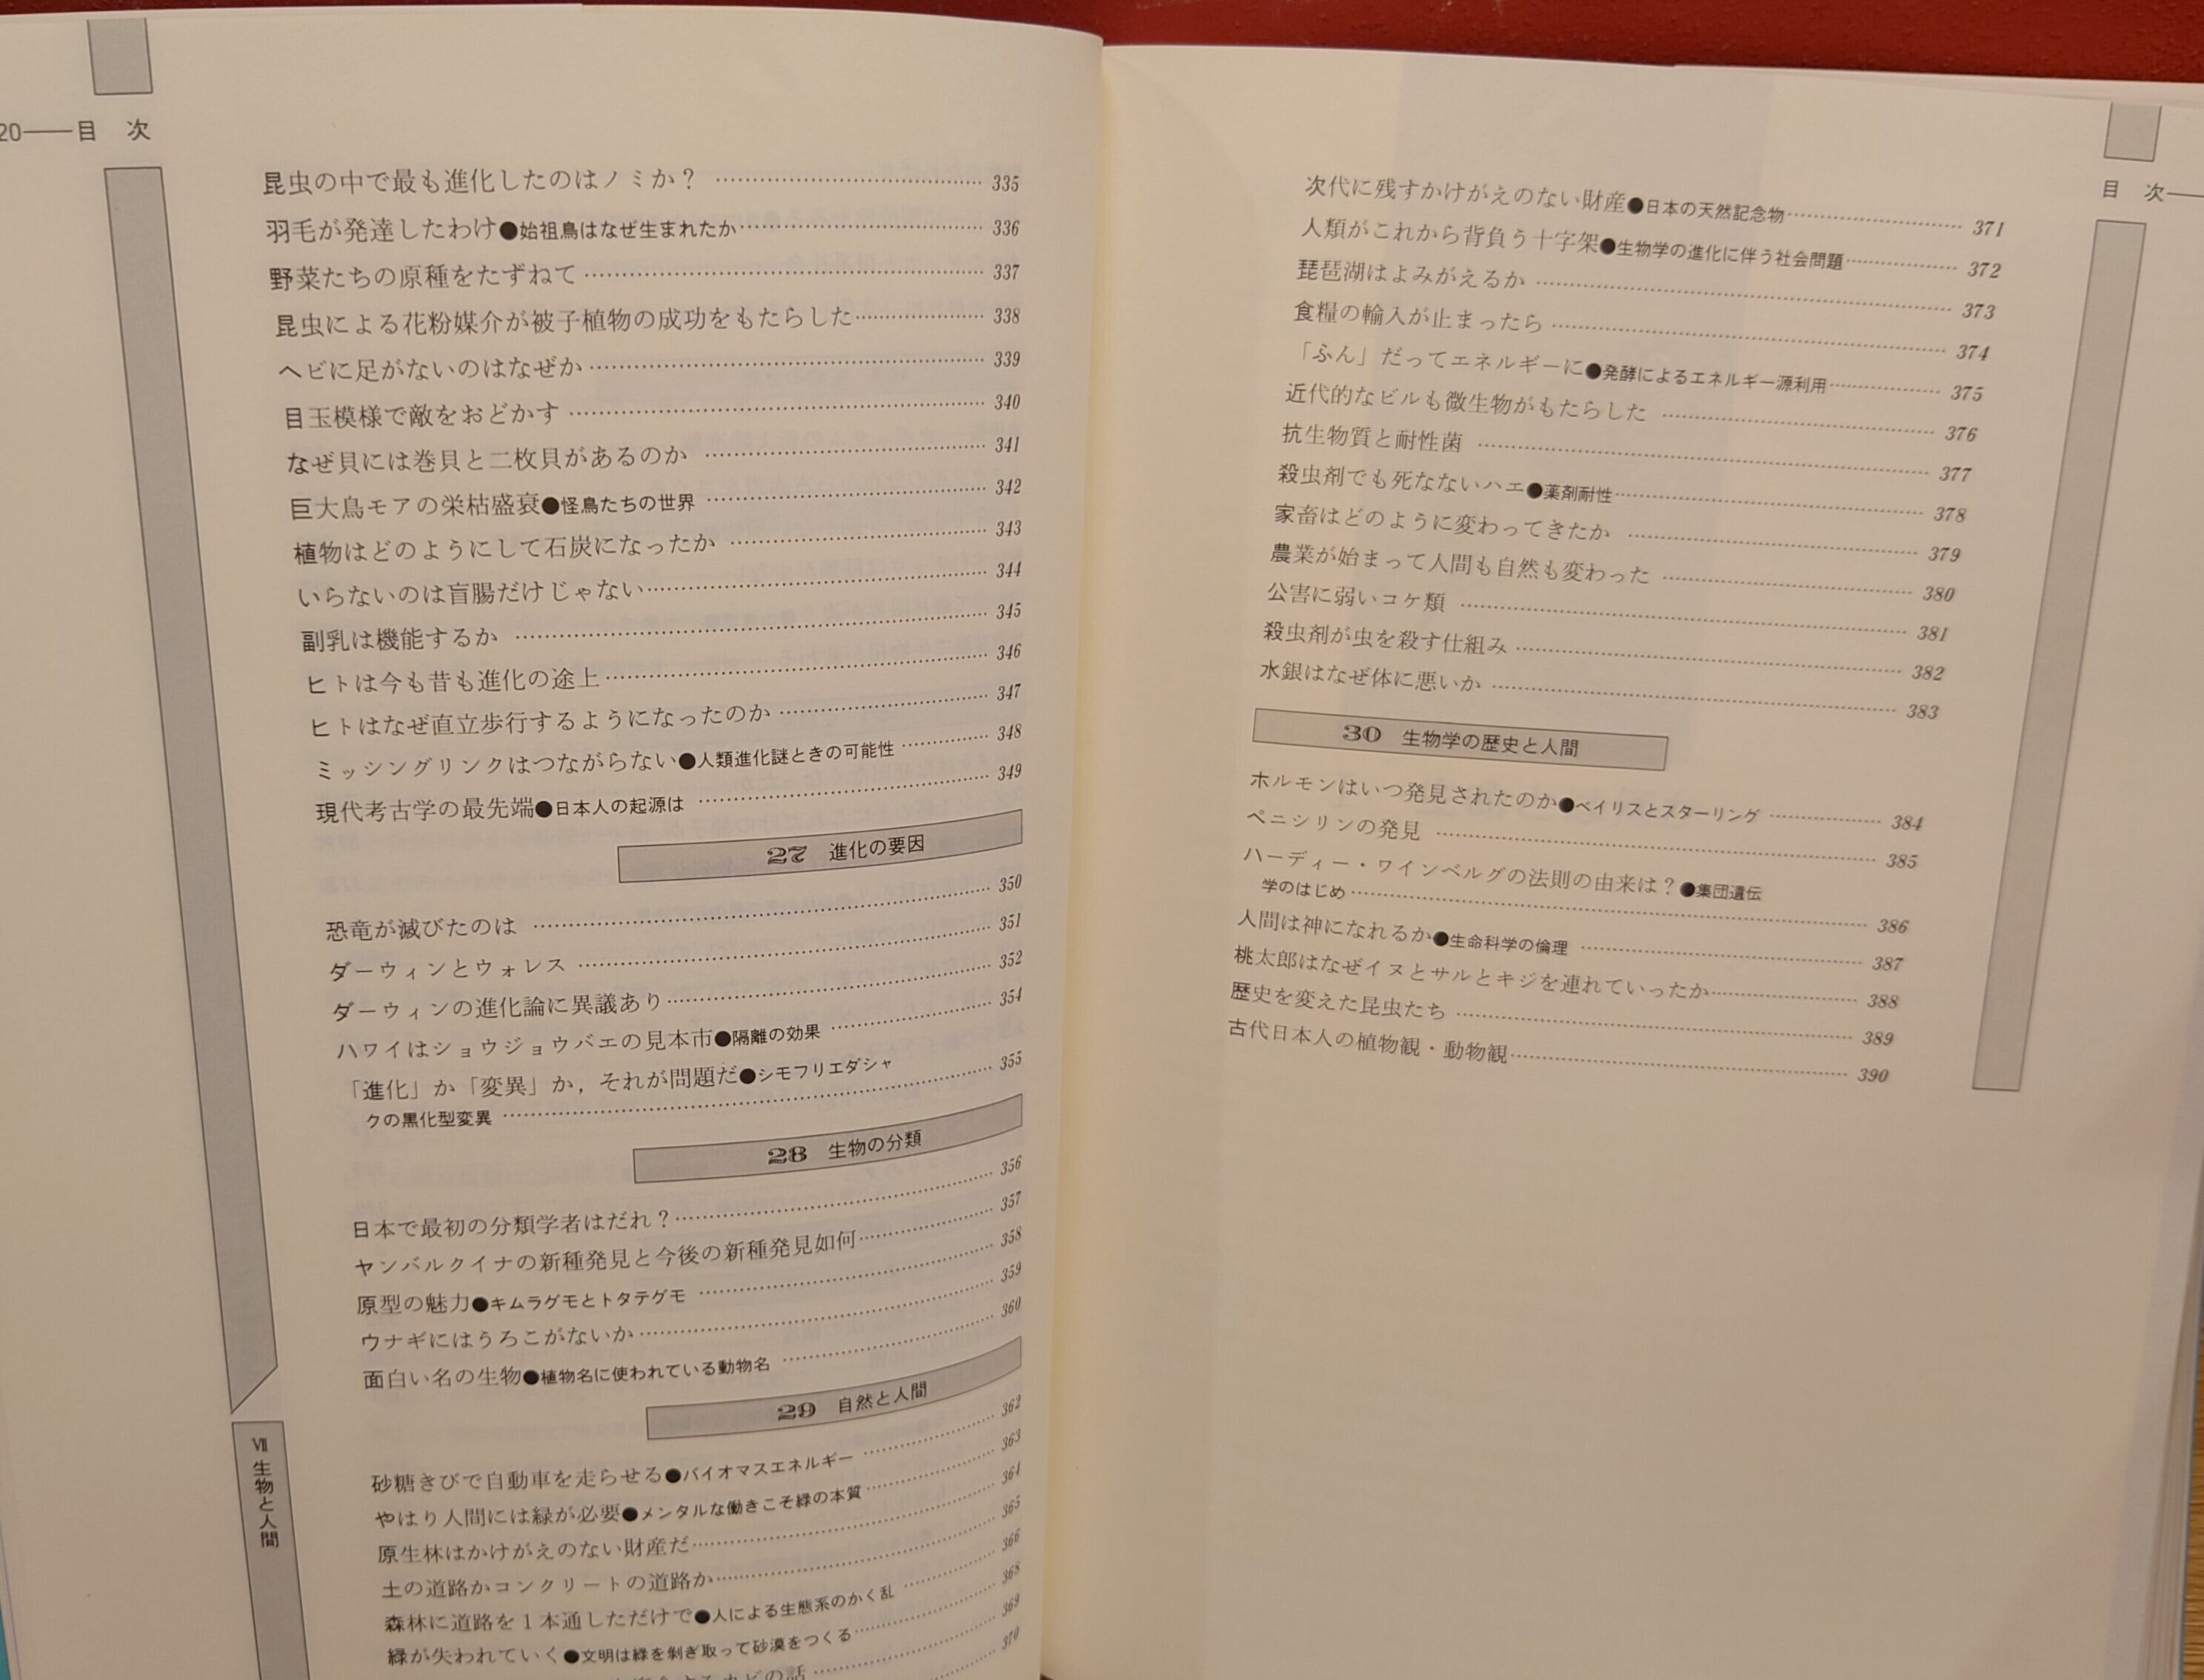 20——目　次
昆虫の中で最も進化したのはノミか？ ……………………………… 335
羽毛が発達したわけ●始祖鳥はなぜ生まれたか……………………………… 336
野菜たちの原種をたずねて……………………………… 337
昆虫による花粉媒介が被子植物の成功をもたらした……………… 338
ヘビに足がないのはなぜか……………………………… 339
目玉模様で敵をおどかす……………………………… 340
なぜ貝には巻貝と二枚貝があるのか ……………………………… 341
巨大鳥モアの栄枯盛衰●怪鳥たちの世界 ……………………………… 342
植物はどのようにして石炭になったか ……………………………… 343
いらないのは盲腸だけじゃない……………………………… 344
副乳は機能するか ……………………………… 345
ヒトは今も昔も進化の途上……………………………… 346
ヒトはなぜ直立歩行するようになったのか……………………… 347
ミッシングリンクはつながらない●人類進化謎ときの可能性 ………… 348
現代考古学の最先端●日本人の起源は ……………………………… 349
27　進化の要因
恐竜が滅びたのは ……………………………… 350
ダーウィンとウォレス ……………………………… 351
ダーウィンの進化論に異議あり……………………………… 352
ハワイはショウジョウバエの見本市●隔離の効果 ……………… 354
「進化」か「変異」か，それが問題だ●シモフリエダシャ
クの黒化型変異 ……………………………… 355
28　生物の分類
日本で最初の分類学者はだれ？……………………………… 356
ヤンバルクイナの新種発見と今後の新種発見如何……………… 357
原型の魅力●キムラグモとトタテグモ ……………………………… 358
ウナギにはうろこがないか……………………………… 359
面白い名の生物●植物名に使われている動物名 ……………………… 360
29　自然と人間
砂糖きびで自動車を走らせる●バイオマスエネルギー ……………… 362
やはり人間には緑が必要●メンタルな働きこそ緑の本質……………… 363
原生林はかけがえのない財産だ……………………………… 364
土の道路かコンクリートの道路か……………………………… 365
森林に道路を1本通しただけで●人による生態系のかく乱 ………… 366
緑が失われていく●文明は緑を剝ぎ取って砂漠をつくる……………… 368
カビの話……………………… 369
370
Ⅶ 生物と人間
目　次——
次代に残すかけがえのない財産●日本の天然記念物……………………… 371
人類がこれから背負う十字架●生物学の進化に伴う社会問題…………… 372
琵琶湖はよみがえるか ……………………………… 373
食糧の輸入が止まったら ……………………………… 374
「ふん」だってエネルギーに●発酵によるエネルギー源利用…………… 375
近代的なビルも微生物がもたらした ……………………………… 376
抗生物質と耐性菌 ……………………………… 377
殺虫剤でも死なないハエ●薬剤耐性……………………………… 378
家畜はどのように変わってきたか ……………………………… 379
農業が始まって人間も自然も変わった ……………………………… 380
公害に弱いコケ類 ……………………………… 381
殺虫剤が虫を殺す仕組み ……………………………… 382
水銀はなぜ体に悪いか ……………………………… 383
30　生物学の歴史と人間
ホルモンはいつ発見されたのか●ベイリスとスターリング …………… 384
ペニシリンの発見 ……………………………… 385
ハーディー・ワインベルグの法則の由来は？●集団遺伝
学のはじめ……………………………… 386
人間は神になれるか●生命科学の倫理 ……………………………… 387
桃太郎はなぜイヌとサルとキジを連れていったか……………………… 388
歴史を変えた昆虫たち ……………………………… 389
古代日本人の植物観・動物観……………………………… 390